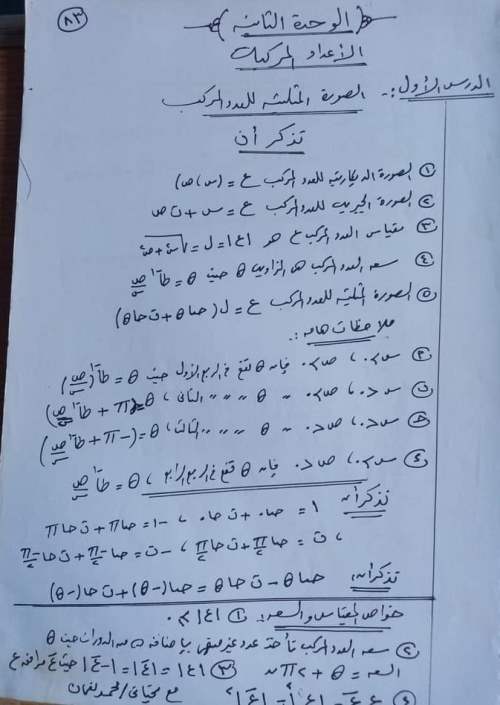 ٨٣
(الوحدة الثانية)
الأعداد المركبة
الدرس الأول :- الصورة المثلثية للعدد المركب
تذكر أن
① الصورة الديكارتية للعدد المركب ع = (س، ص)
② الصورة الجبرية للعدد المركب ع = س + ت ص
③ مقياس العدد المركب ع هو |ع| = ل = √س² + ص²
④ سعة العدد المركب هى الزاوية θ حيث θ = طا⁻¹ ص/س
⑤ الصورة المثلثية للعدد المركب ع = ل (حتا θ + ت حا θ)
ملاحظات هامة :
س > ٠ ، ص > ٠ فإن θ تقع فى الربع الأول حيث θ = طا⁻¹ (ص/س)
س < ٠ ، ص > ٠ " θ " " " الثانى ، θ = (π + طا⁻¹ ص/س)
س < ٠ ، ص < ٠ " θ " " " الثالث ، θ = (-π + طا⁻¹ ص/س)
④ س > ٠ ، ص < ٠ فإن θ تقع فى الربع الرابع ، θ = طا⁻¹ ص/س
تذكر أن ١ = حتا ٠ + ت حا ٠ ، -١ = حتا π + ت حا π
، ت = حتا π/٢ + ت حا π/٢ ، -ت = حتا -π/٢ + ت حا -π/٢
تذكر أن : حتا θ - ت حا θ = حتا (-θ) + ت حا (-θ)
خواص المقياس والسعة : ① |ع| ≥ ٠
② سعة العدد المركب تأخذ عدد غير منتهى بإضافة ن من الدورات حيث θ
السعة = θ + ٢ π ن ③ |ع| = |ع̅| = |-ع| = |-ع̅| حيث ع̅ مرافق ع
④ ع ع̅ = |ع|² = |ع̅|²
مع تحياتى / محمد